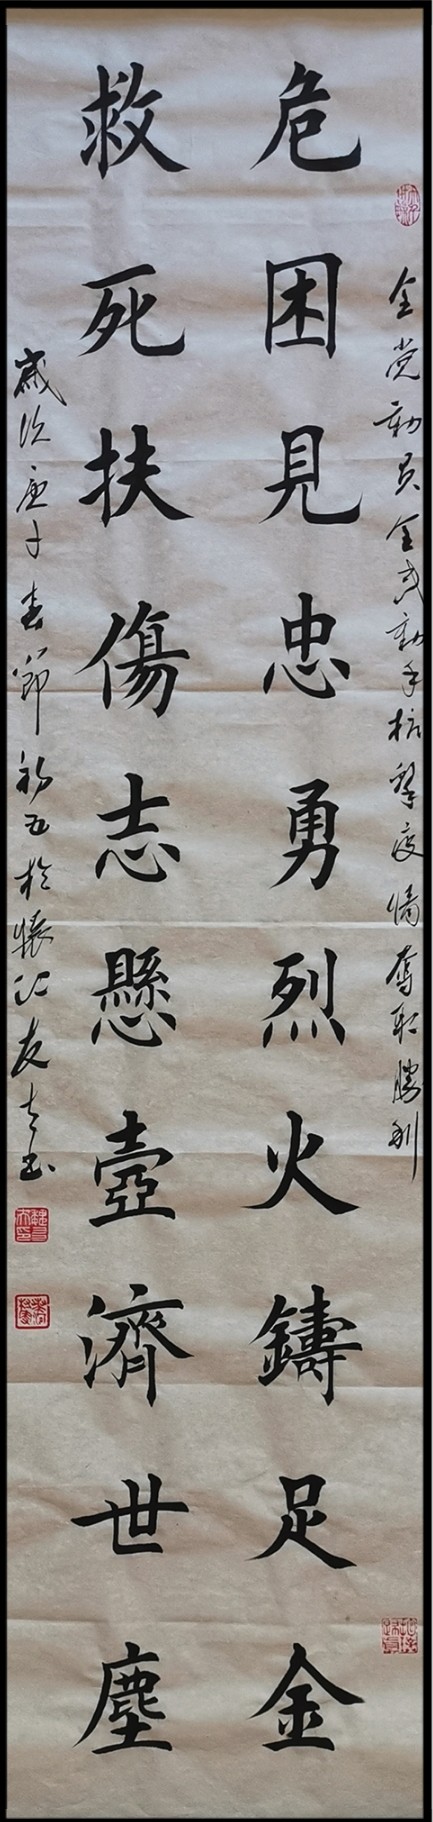 全党動員全民動手抗擊疫情奪取勝利
危困見忠勇烈火鑄足金
救死扶傷志懸壺濟世塵
歲次庚子春節初五於懷江友立書